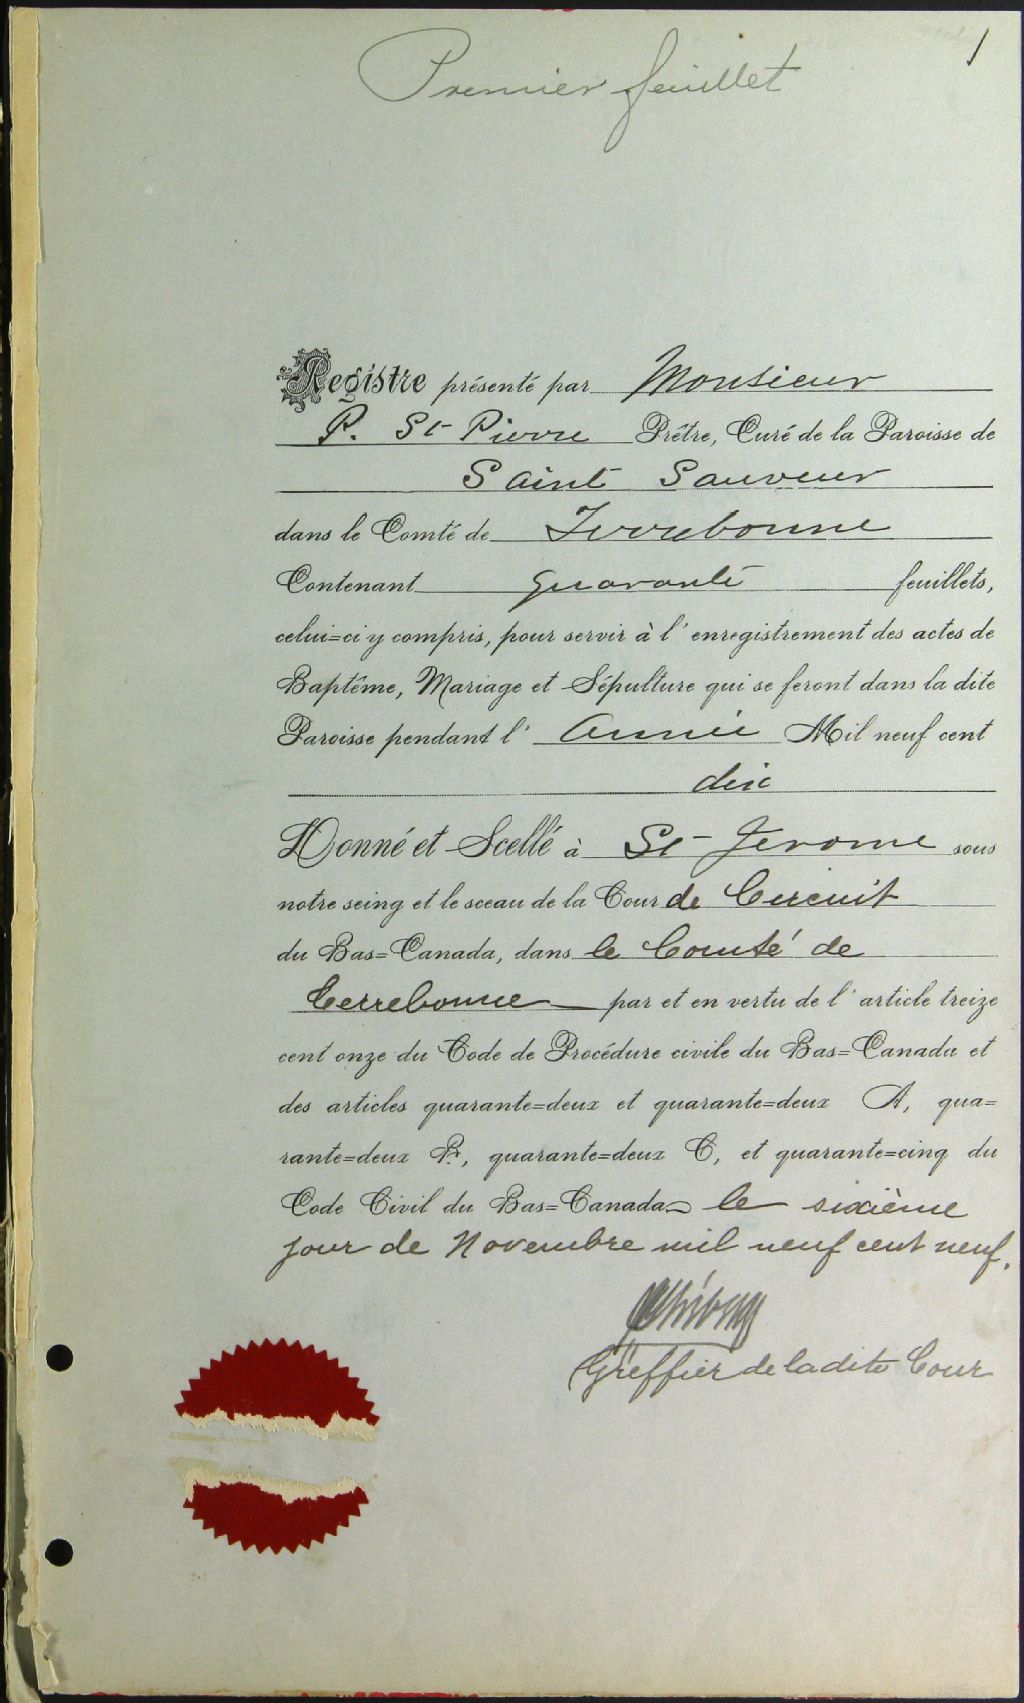 1
Premier feuillet
Registre présenté par Monsieur
P. St-Pierre Prêtre, Curé de la Paroisse de
Saint Sauveur
dans le Comté de Terrebonne
Contenant quarante feuillets,
celui=ci y compris, pour servir à l'enregistrement des actes de
Baptême, Mariage et Sépulture qui se feront dans la dite
Paroisse pendant l'année Mil neuf cent
dix
Donné et Scellé à St-Jerome sous
notre seing et le sceau de la Cour de Circuit
du Bas=Canada, dans le Comté de
Terrebonne par et en vertu de l'article treize
cent onze du Code de Procédure civile du Bas=Canada et
des articles quarante=deux et quarante=deux A, qua=
rante=deux B, quarante=deux C, et quarante=cinq du
Code Civil du Bas=Canada le sixième
jour de Novembre mil neuf cent neuf.
Greffier de la dite Cour